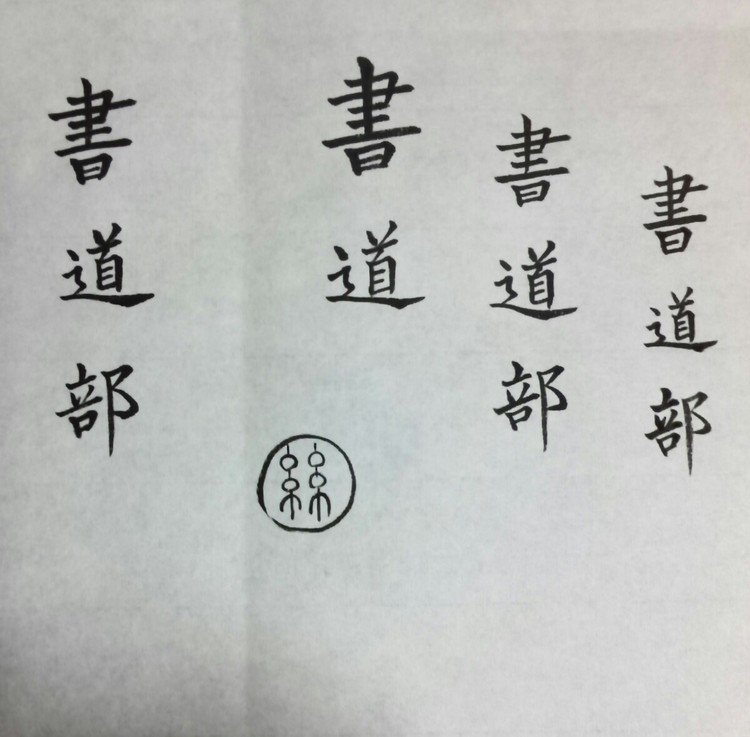 書道部
書道部
書道
絲
書道部